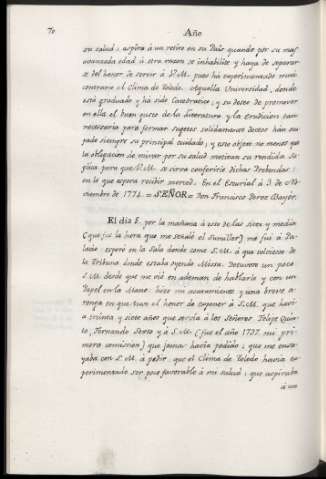 70 Año
su salud, aspira á un retiro en su País quando por su mas
avanzada edad ú otra causa se inhabilite y haya de separar-
se del honor de servir á V. M. pues há experimentado mui
contrario el Clima de Toledo. Aquella Universidad, donde
está graduado y há sido Catedratico; y su deseo de promover
en ella el buen gusto de la literatura y la erudicion tan
necesaria para formar sugetos solidamente doctos hán ocu-
pado siempre su principal cuidado; y este objeto no menos que
la obligacion de mirar por su salud motivan su rendida Sú-
plica para que V. M. se sirva conferirle dichas Prebendas:
en lo que espera recibir merced. En el Escorial á 3 de No-
viembre de 1774. = SEÑOR = Don Francisco Perez Bayér.
El dia 5. por la mañana á eso de las siete y media
(que fué la hora que me señaló el Sumillér) me fui á Pa-
lacio: esperé en la Sala donde come S. M. á que saliesse de
la Tribuna donde estaba oyendo Missa. Detuvose un poco
S. M. desde que me vió en ademan de hablarle y con un
Papel en la Mano: hice mi acatamiento y una breve a-
renga en que tuve el honor de exponer á S. M. que havi-
a treinta y siete años que servia á los Señores Felipe Quin-
to, Fernando Sexto y á S. M. (fue el año 1737. mi pri-
mera comission) que jamas havia pedido; que me ensa-
yaba con S. M. á pedir: que el Clima de Toledo havia ex-
perimentado ser poco favorable á mi salud; que aspiraba
á un